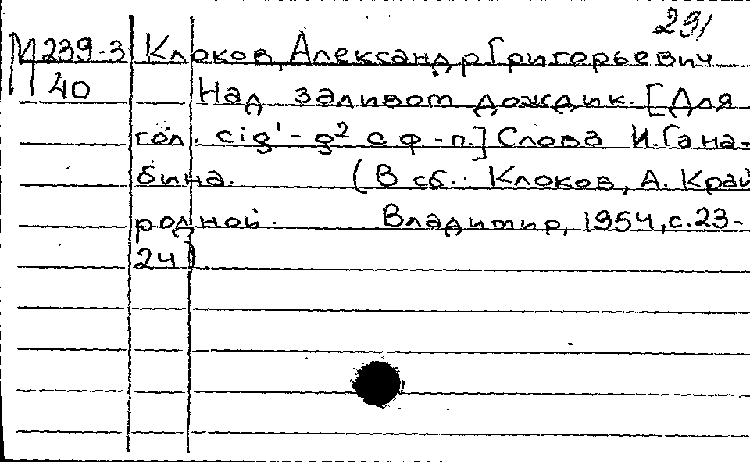 291
М 239-3 Клоков, Александр Григорьевич
40 Над заливом дождик. [Для
гол. cis¹-g² с ф-п.] Слова И. Гана-
бина. (В сб.: Клоков, А. Край
родной. Владимир, 1954, с. 23-
24)